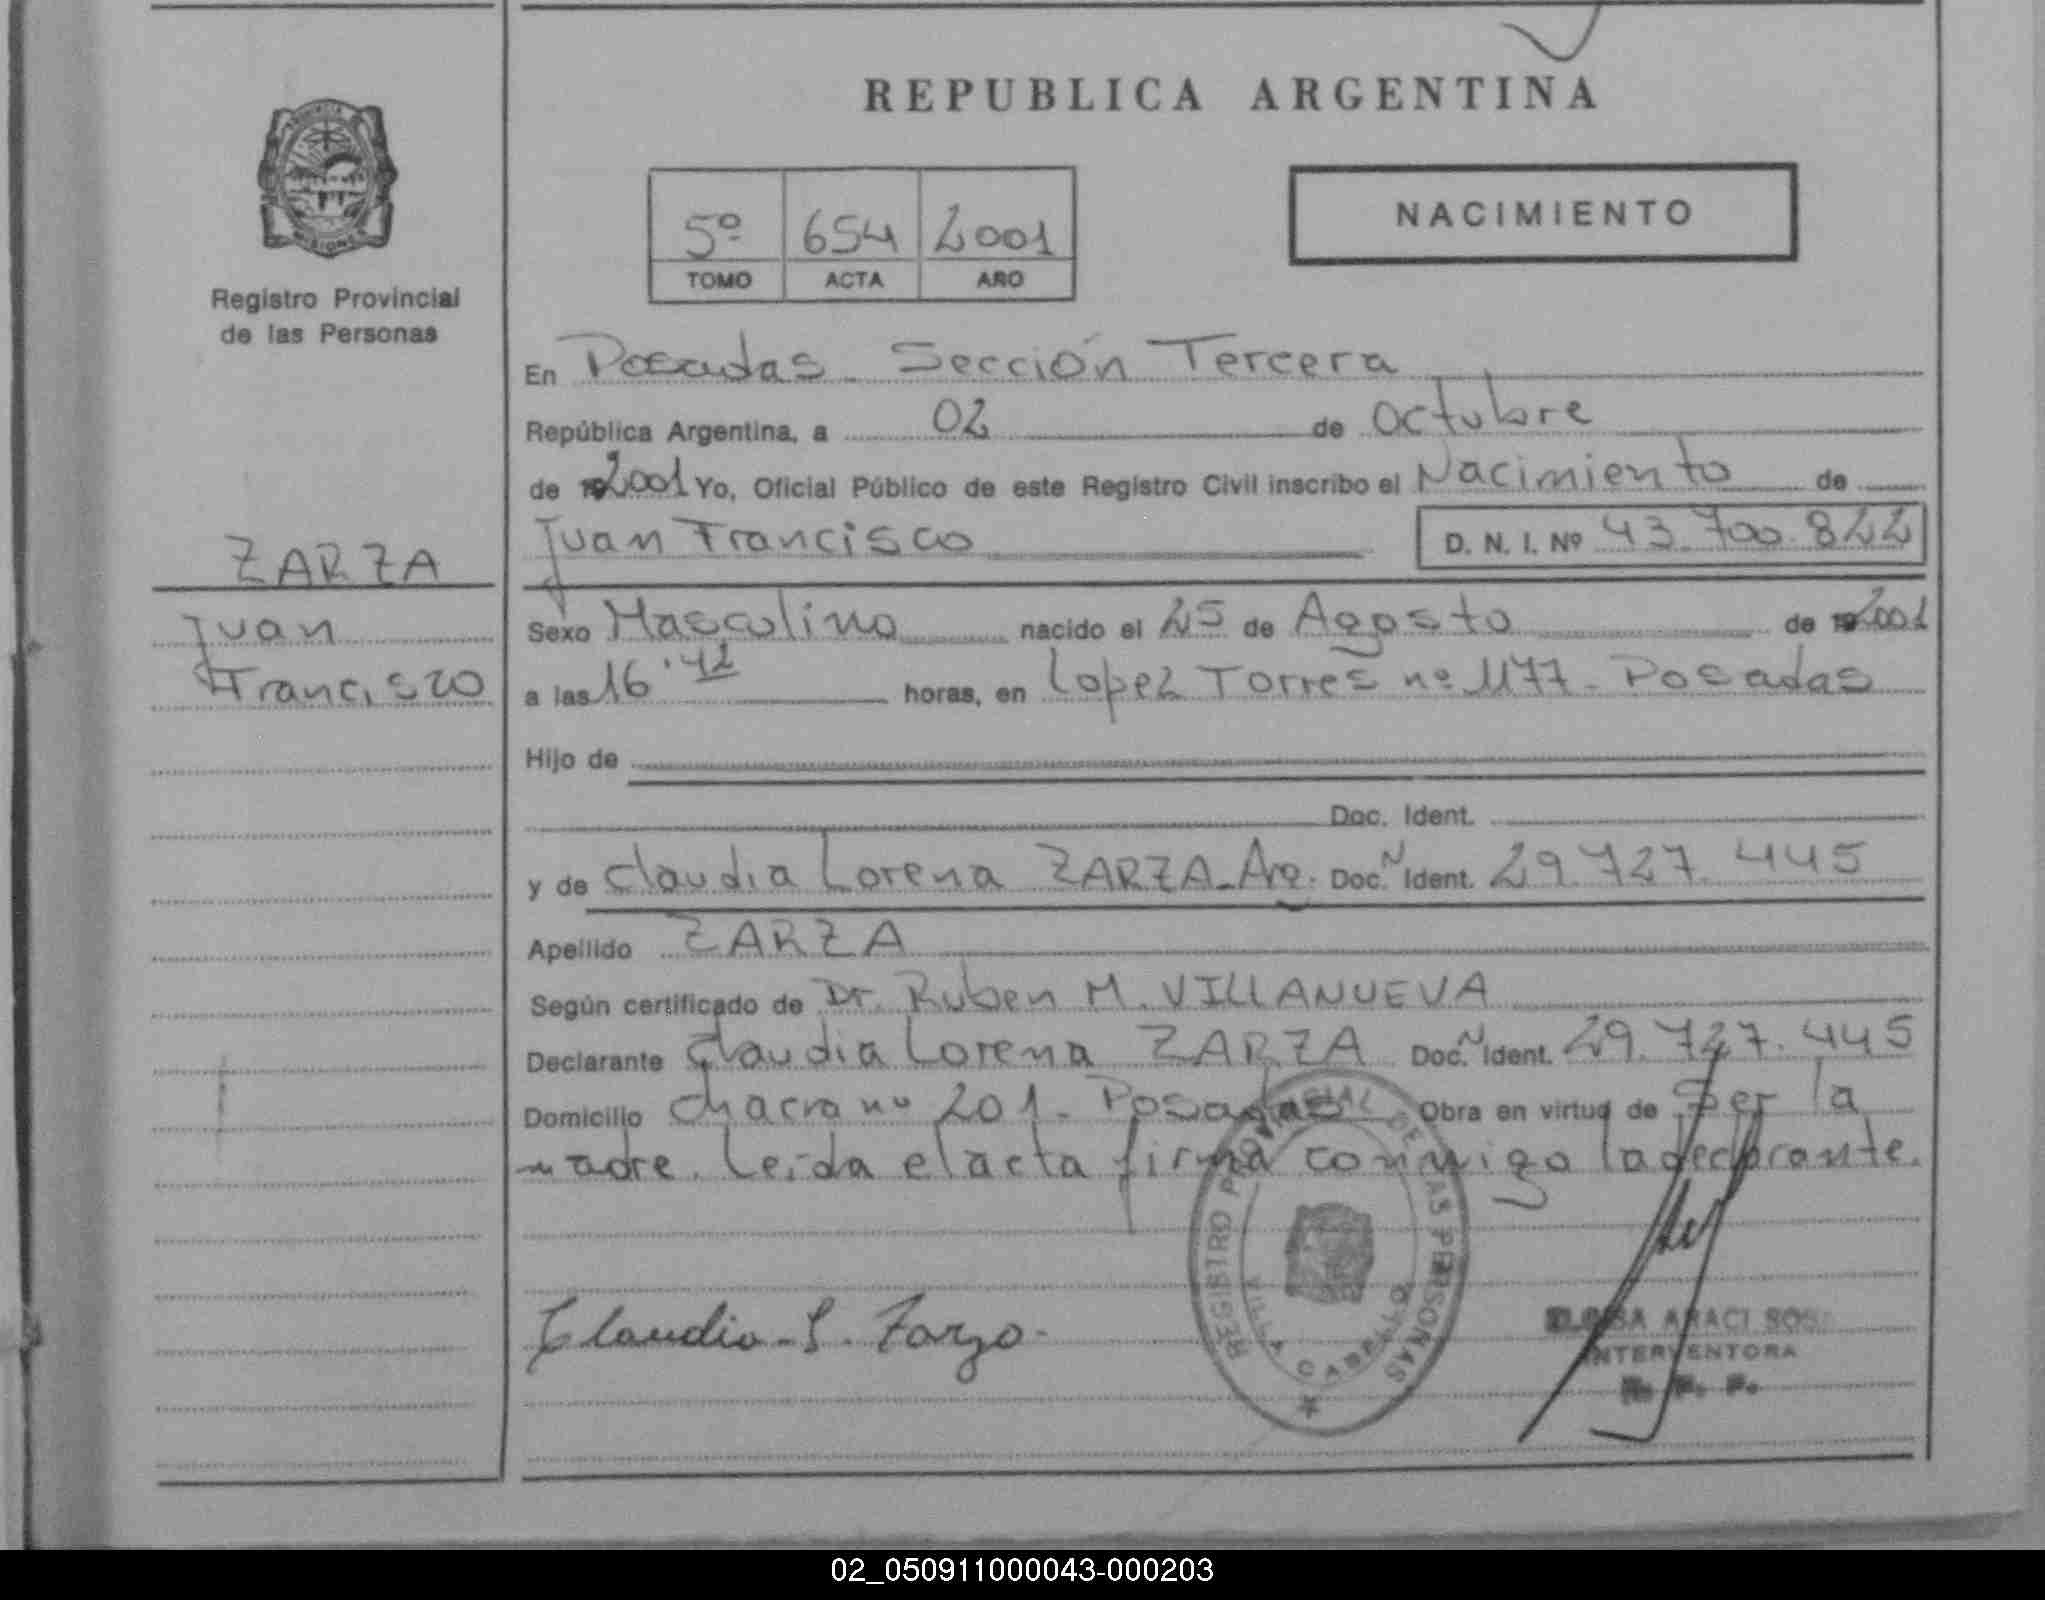 REPUBLICA ARGENTINA
PROVINCIA
MISIONES
Registro Provincial
de las Personas
NACIMIENTO
5º 654 2001
TOMO ACTA AÑO
En Posadas. Sección Tercera
República Argentina, a 02 de Octubre
de 2001 Yo, Oficial Público de este Registro Civil inscribo el Nacimiento de
Juan Francisco D. N. I. Nº 43.700.822
ZARZA
Juan
Francisco
Sexo Masculino nacido el 25 de Agosto de 2001
a las 16'42 horas, en Lopez Torres nº 1177 - Posadas
Hijo de
Doc. Ident.
y de Claudia Lorena ZARZA - Arg. Doc. N Ident. 29.727.445
Apellido ZARZA
Según certificado de Dr. Ruben M. VILLANUEVA
Declarante Claudia Lorena ZARZA Doc. N Ident. 29.727.445
Domicilio chacra nº 201 - Posadas Obra en virtud de Ser la
madre. Leida el acta firma conmigo la declarante.
REGISTRO PROVINCIAL DE LAS PERSONAS
VILLA CABELLO
Claudia - L. Zarza -
ARACI SOSA
INTERVENTORA
02_050911000043-000203